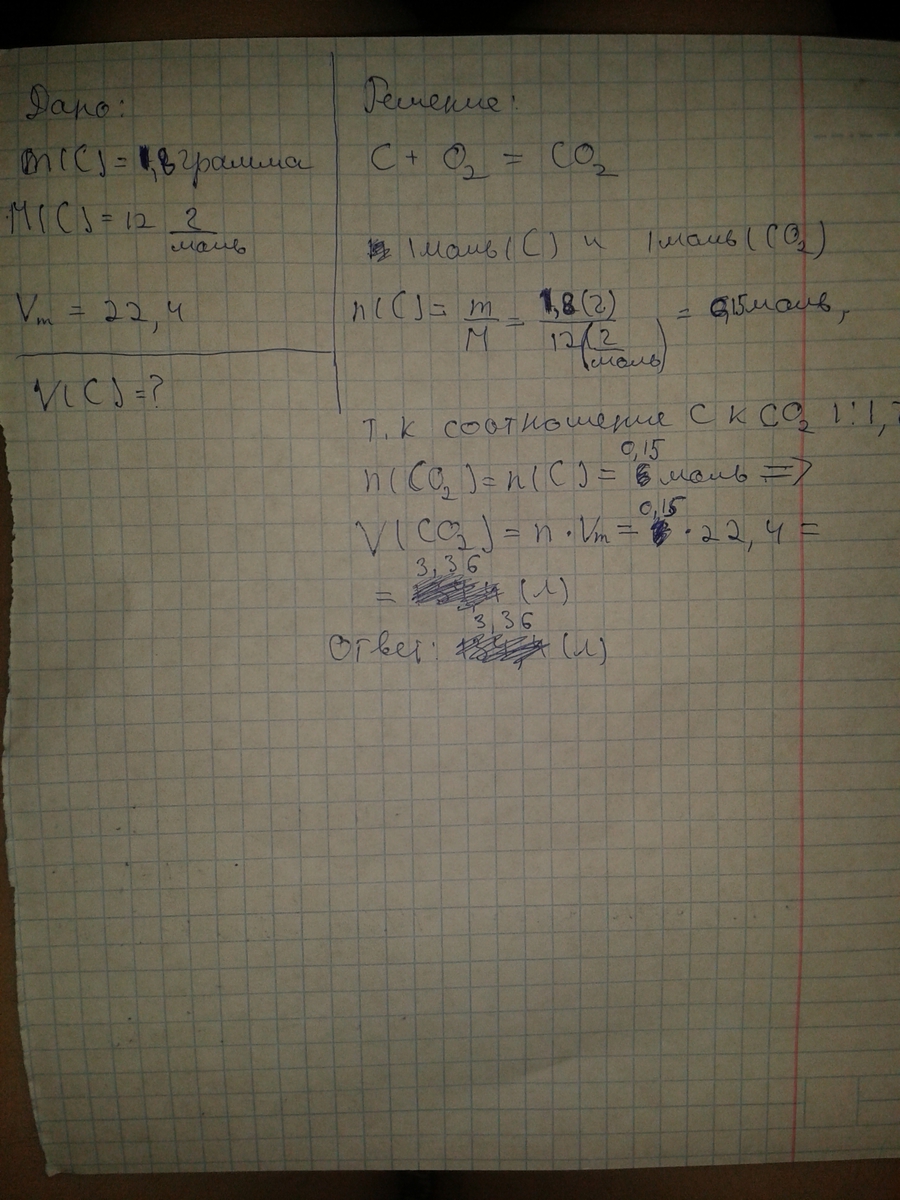 Дано:
m(C) = 1,8 грамма
M(C) = 12 г/моль
Vm = 22,4
V(C) = ?
Решение:
C + O2 = CO2
1 моль (C) и 1 моль (CO2)
n(C) = m/M = 1,8 (г)/12 (г/моль) = 0,15 моль,
т.к соотношение C к CO2 1:1,
n(CO2) = n(C) = 0,15 моль =>
V(CO2) = n · Vm = 0,15 · 22,4 =
= 3,36 (л)
Ответ: 3,36 (л)